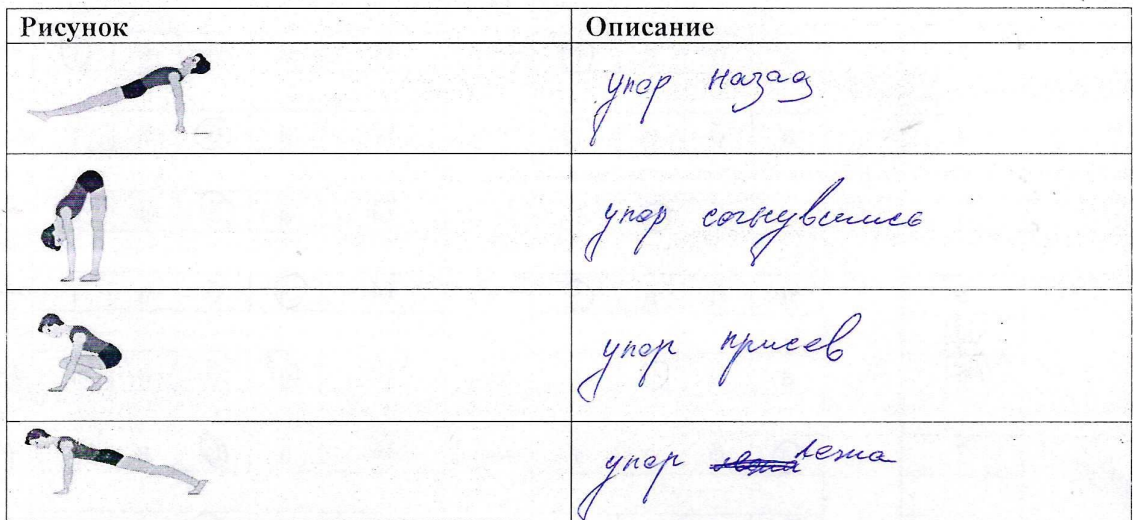 Рисунок Описание
упор назад
упор согнувшись
упор присев
упор лежа